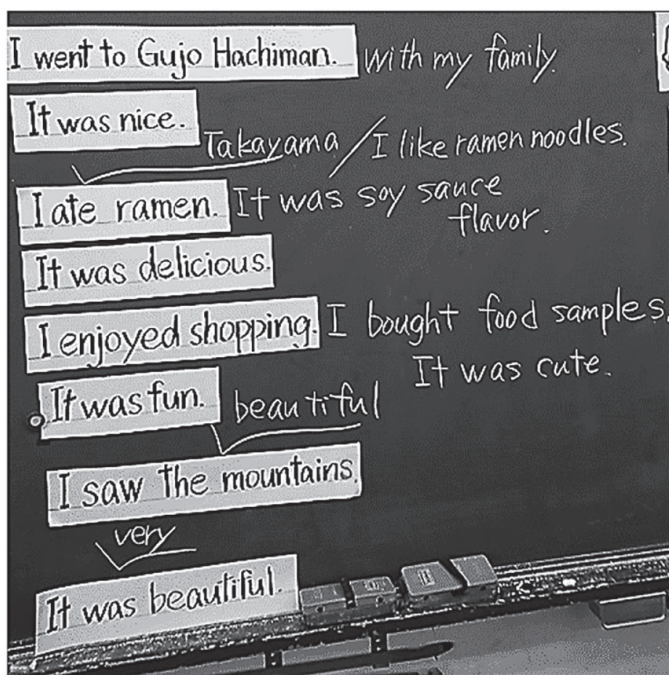 I went to Gujo Hachiman. with my family.
It was nice.
Takayama / I like ramen noodles.
I ate ramen. It was soy sauce
flavor.
It was delicious.
I enjoyed shopping. I bought food samples.
It was cute.
It was fun. beautiful
I saw the mountains.
very
It was beautiful.